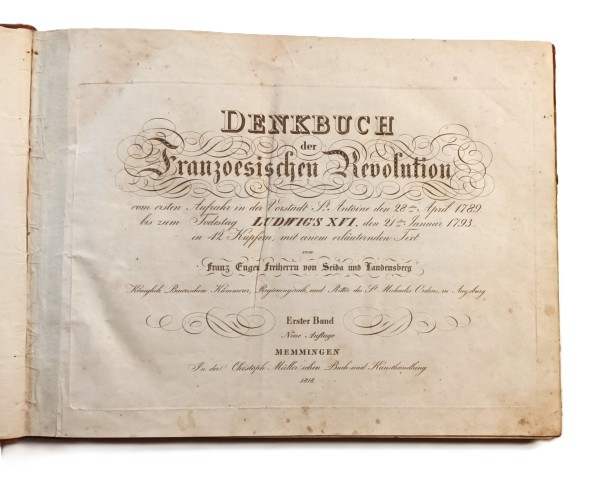 DENKBUCH
der
Franzoesischen Revolution
vom ersten Aufruhr in der Vorstadt St. Antoine den 28ten April 1789
bis zum Todestag LUDWIG'S XVI. den 21ten Januar 1793.
in 42 Kupfern, mit einem erläuternden Text
von
Franz Eugen Freiherrn von Seida und Landensberg
Königlich Baierschem Kämmerer, Regierungsrath, und Ritter des St. Michaelis Ordens, in Augsburg
Erster Band
Neue Auflage
MEMMINGEN
In der Christoph Müller'schen Buch und Kunsthandlung
1818.